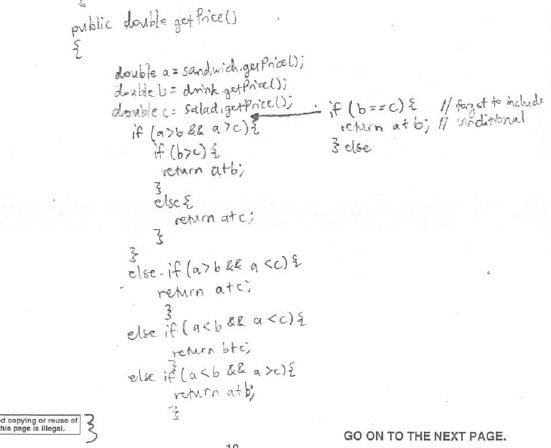 public double getPrice()
{
double a = sandwich.getPrice();
double b = drink.getPrice();
double c = salad.getPrice();
if (b==c) { // forgot to include
return a+b; // conditional
} else
if (a>b && a>c) {
if (b>c) {
return a+b;
}
else {
return a+c;
}
}
else if (a>b && a<c) {
return a+c;
}
else if (a<b && a<c) {
return b+c;
}
else if (a<b && a>c) {
return a+b;
}
}
d copying or reuse of
his page is illegal.
GO ON TO THE NEXT PAGE.